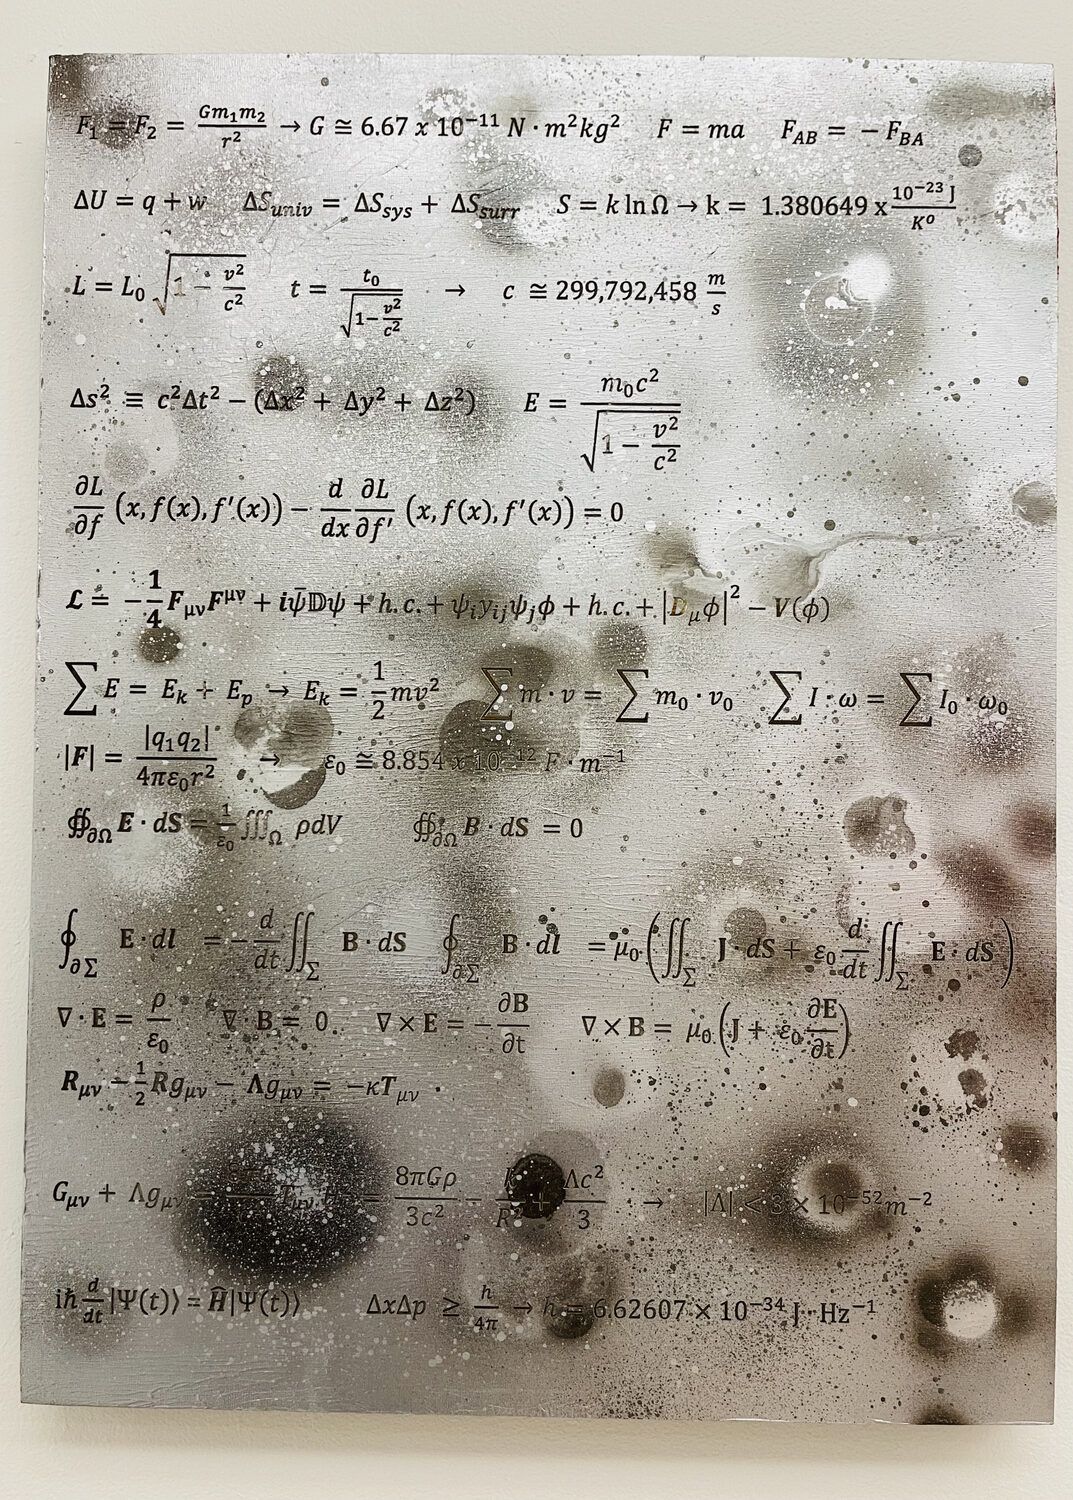 F₁ = F₂ = Gm₁m₂/r² → G ≅ 6.67 x 10⁻¹¹ N · m²kg² F = ma F_AB = − F_BA
ΔU = q + w ΔS_univ = ΔS_sys + ΔS_surr S = k ln Ω → k = 1.380649 x 10⁻²³ J/K°
L = L₀ √(1 − v²/c²) t = t₀/√(1−v²/c²) → c ≅ 299,792,458 m/s
Δs² ≡ c²Δt² − (Δx² + Δy² + Δz²) E = m₀c²/√(1 − v²/c²)
∂L/∂f (x, f(x), f′(x)) − d/dx ∂L/∂f′ (x, f(x), f′(x)) = 0
ℒ = −1/4 F_μν F^μν + iψ̄𝔻ψ + h.c. + ψᵢyᵢⱼψⱼϕ + h.c. + |D_μϕ|² − V(ϕ)
∑E = E_k + E_p → E_k = 1/2 mv² ∑m · v = ∑m₀ · v₀ ∑I · ω = ∑I₀ · ω₀
|F| = |q₁q₂|/4πε₀r² → ε₀ ≅ 8.854 x 10⁻¹² F · m⁻¹
∯_∂Ω E · dS = 1/ε₀ ∭_Ω ρdV ∯_∂Ω B · dS = 0
∮_∂Σ E · dl = − d/dt ∬_Σ B · dS ∮_∂Σ B · dl = μ₀ (∬_Σ J · dS + ε₀ d/dt ∬_Σ E · dS)
∇ · E = ρ/ε₀ ∇ · B = 0 ∇ × E = − ∂B/∂t ∇ × B = μ₀ (J + ε₀ ∂E/∂t)
R_μν − 1/2 Rg_μν − Λg_μν = −κT_μν
G_μν + Λg_μν = T_μν = 8πGρ/3c² − /R² + Λc²/3 → |Λ| < 3 × 10⁻⁵²m⁻²
iħ d/dt |Ψ(t)⟩ = Ĥ|Ψ(t)⟩ ΔxΔp ≥ h/4π → h = 6.62607 × 10⁻³⁴ J · Hz⁻¹